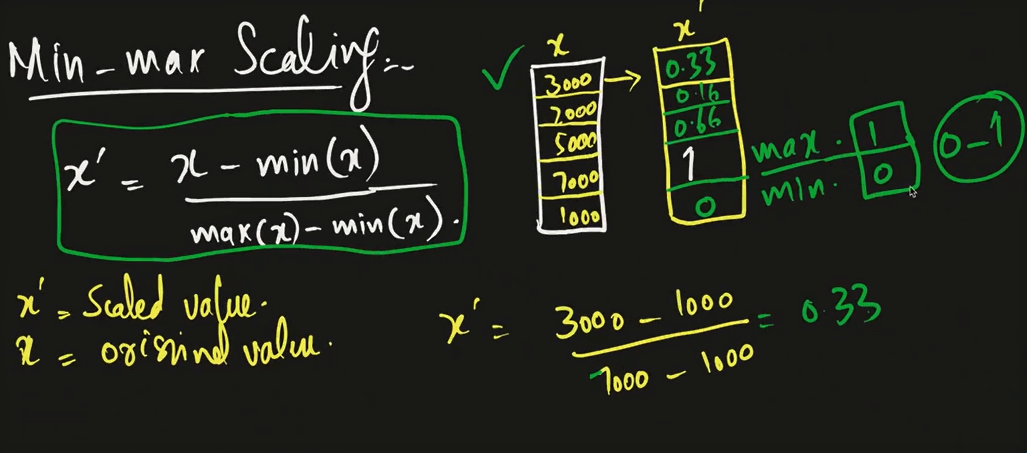 Min-max Scaling:-
x' = x - min(x) / max(x) - min(x).
x' = Scaled value.
x = original value.
x
3000
2000
5000
7000
1000
x'
0.33
0.16
0.66
1
0
max. 1
min. 0
0-1
x' = 3000 - 1000 / 7000 - 1000 = 0.33